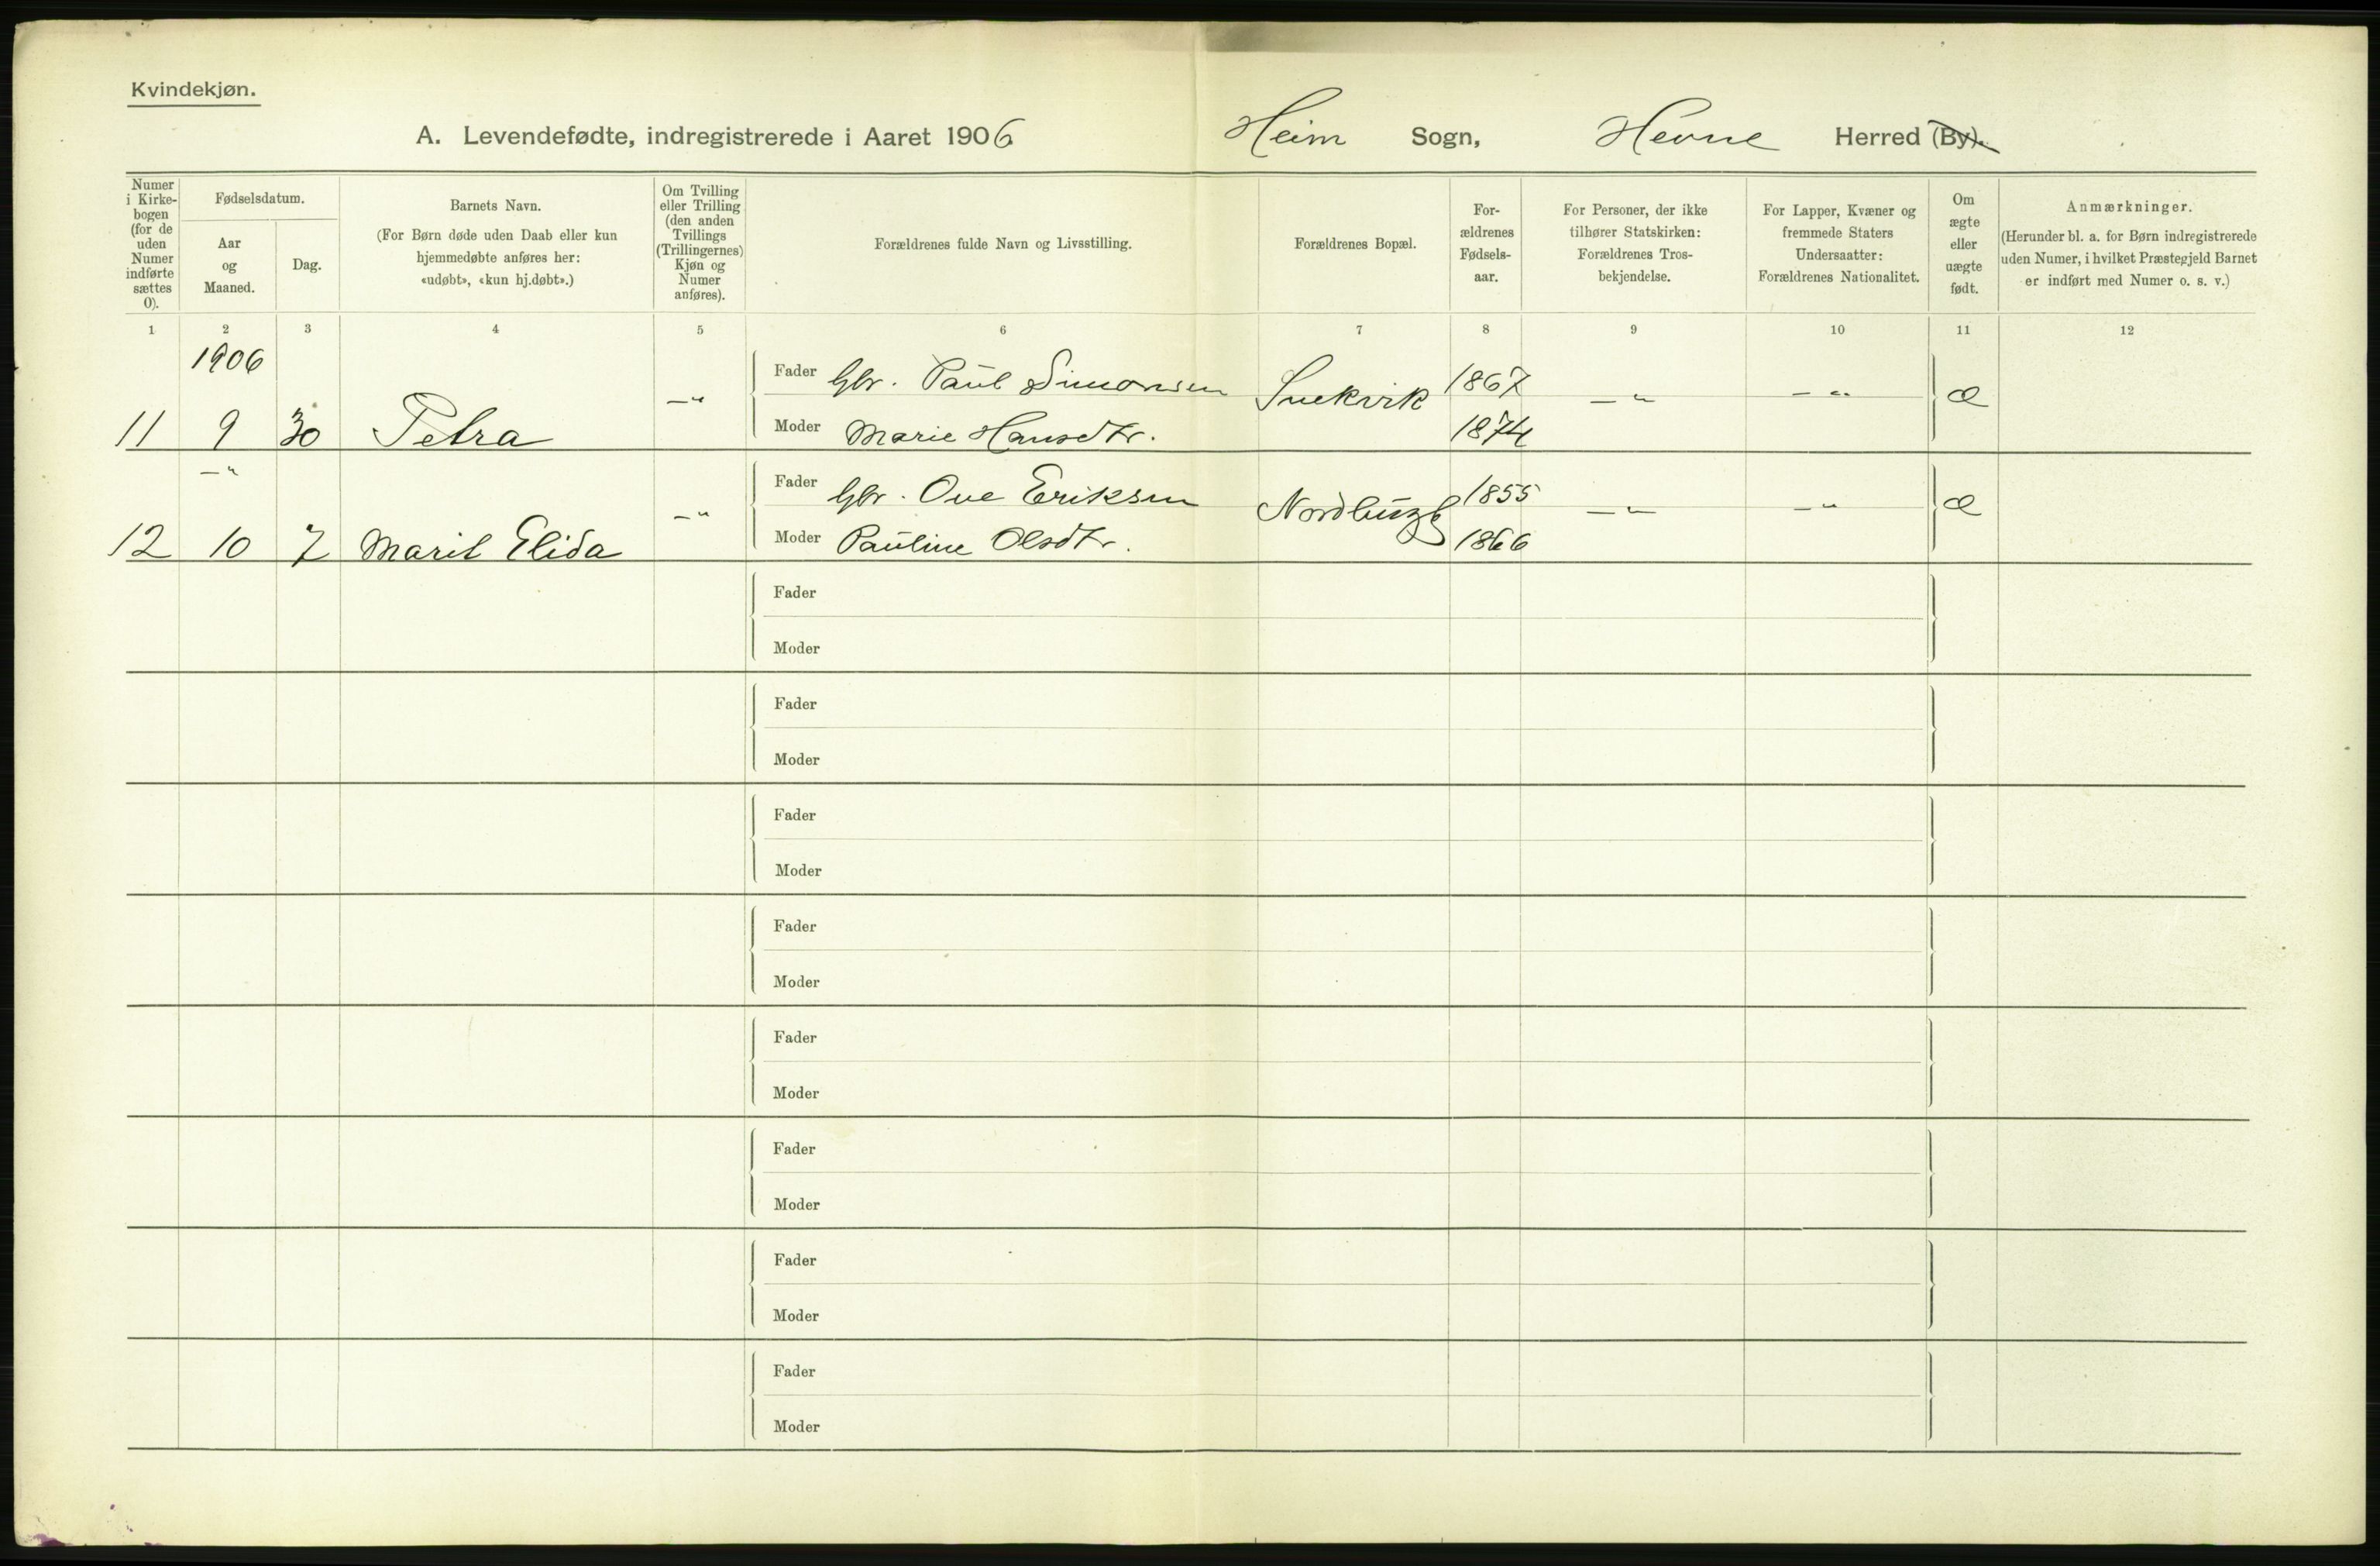 Kvindekjøn.
A. Levendefødte, indregistrerede i Aaret 1906 Heim Sogn, Hevne Herred (By).
Numer i Kirke-bogen (for de uden Numer indførte sættes 0).
Fødselsdatum.
Aar og Maaned.
Dag.
Barnets Navn.
(For Børn døde uden Daab eller kun hjemmedøbte anføres her: «udøbt», «kun hj.døbt».)
Om Tvilling eller Trilling (den anden Tvillings (Trillingernes) Kjøn og Numer anføres).
Forældrenes fulde Navn og Livsstilling.
Forældrenes Bopæl.
For-ældrenes Fødsels-aar.
For Personer, der ikke tilhører Statskirken: Forældrenes Tros-bekjendelse.
For Lapper, Kvæner og fremmede Staters Undersaatter: Forældrenes Nationalitet.
Om ægte eller uægte født.
Anmærkninger.
(Herunder bl. a. for Børn indregistrerede uden Numer, i hvilket Præstegjeld Barnet er indført med Numer o. s. v.)
1 2 3 4 5 6 7 8 9 10 11 12
1906
Fader Gbr. Paul Simonsen 1867
11 9 30 Petra —" Snekvik —" —" Æ
Moder Marie Hansdtr. 1874
—"
Fader Gbr. Ove Eriksen 1855
12 10 7 Marit Elida —" —" —" Æ
Moder Pauline Olsdtr. 1866
Fader
Moder
Fader
Moder
Fader
Moder
Fader
Moder
Fader
Moder
Fader
Moder
Fader
Moder
Fader
Moder